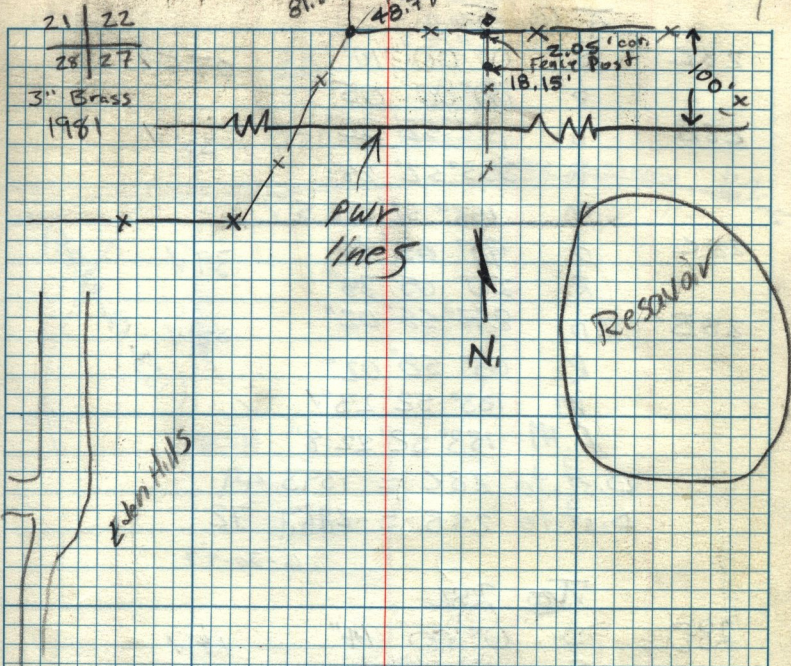 48.7
21 | 22
28 | 27
3" Brass
1981
2.05' cor.
Fence Post
18.15'
100'±
PWR
lines
N.
Resavair
Eden Hills